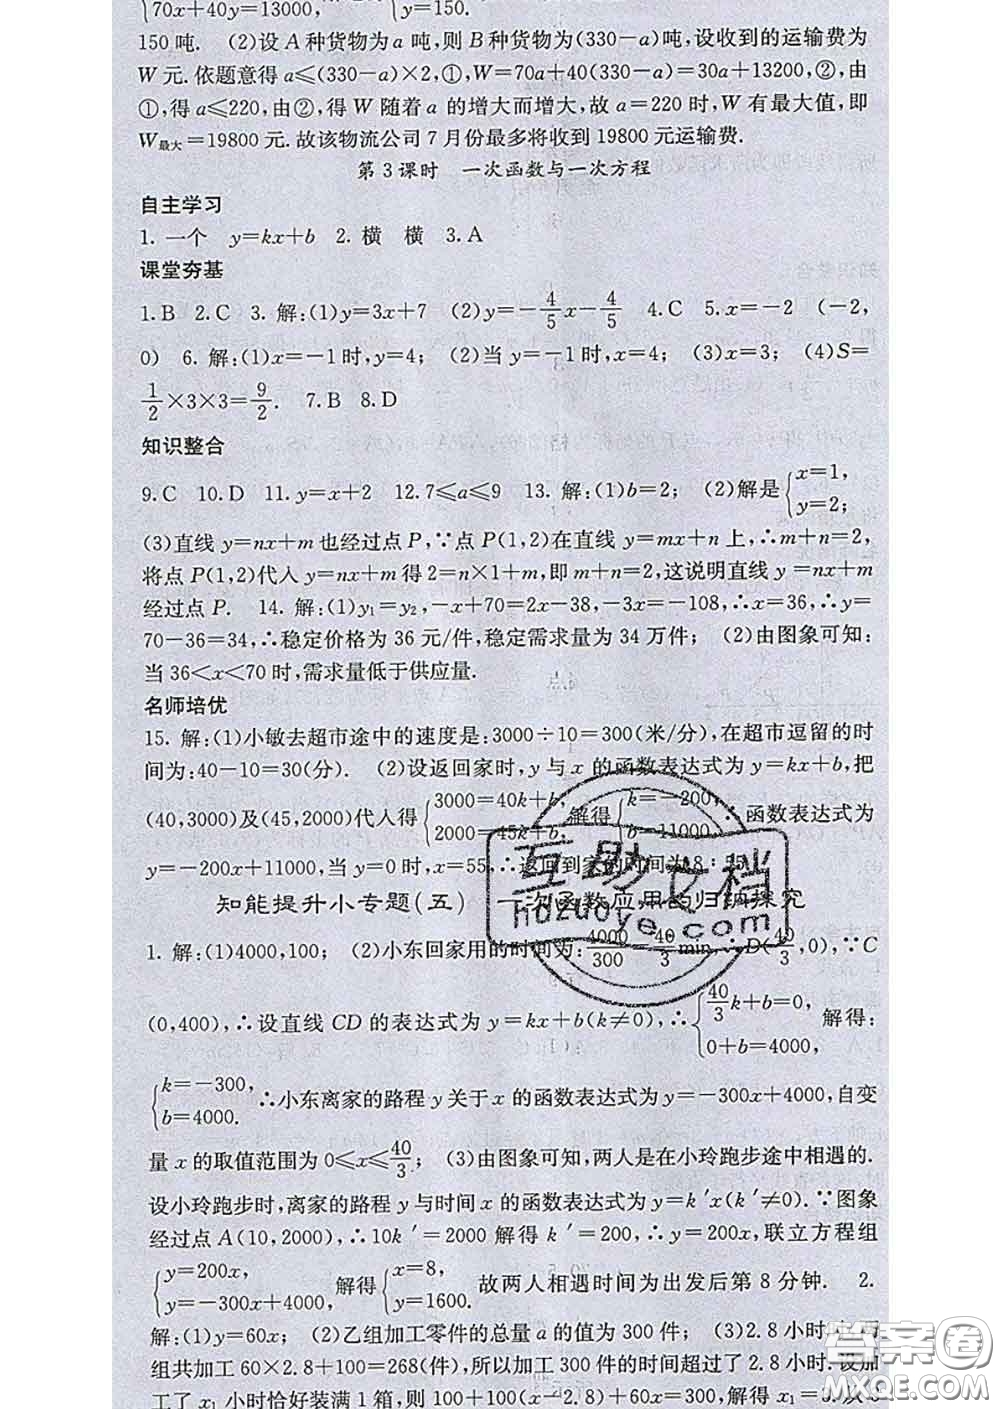 70x+40y=13000,   y=150.
150 吨. (2)设 A 种货物为 a 吨,则 B 种货物为(330-a)吨,设收到的运输费为
W 元.依题意得 a≤(330-a)×2,①,W=70a+40(330-a)=30a+13200,②,由
①,得 a≤220,由②,得 W 随着 a 的增大而增大,故 a=220 时,W 有最大值,即
W最大=19800 元.故该物流公司 7 月份最多将收到 19800 元运输费.
第 3 课时 一次函数与一次方程
自主学习
1. 一个 y=kx+b 2. 横 横 3.A
课堂夯基
1.B 2.C 3. 解:(1)y=3x+7 (2)y=-4/5x-4/5 4.C 5.x=-2 (-2,
0) 6. 解:(1)x=-1时,y=4; (2)当 y=-1时,x=4; (3)x=3; (4)S=
1/2×3×3=9/2. 7.B 8.D
知识整合
9.C 10.D 11.y=x+2 12.7≤a≤9 13. 解:(1)b=2; (2)解是{x=1, y=2;
(3)直线 y=nx+m 也经过点 P,∵点 P(1,2)在直线 y=mx+n 上,∴m+n=2,
将点 P(1,2)代入 y=nx+m 得 2=n×1+m,即 m+n=2,这说明直线 y=nx+m
经过点 P. 14. 解:(1)y₁=y₂,-x+70=2x-38,-3x=-108,∴x=36,∴y=
70-36=34,∴稳定价格为 36 元/件,稳定需求量为 34 万件; (2)由图象可知:
当 36<x<70 时,需求量低于供应量.
名师培优
15. 解:(1)小敏去超市途中的速度是:3000÷10=300(米/分),在超市逗留的时
间为:40-10=30(分). (2)设返回家时,y 与 x 的函数表达式为 y=kx+b,把
(40,3000)及(45,2000)代入得{3000=40k+b, 2000=45k+b, 解得{k=-200, b=11000, ∴函数表达式为
y=-200x+11000,当 y=0 时,x=55,∴返回到家的时间为 8:55.
知能提升小专题(五) 一次函数应用的归纳探究
1. 解:(1)4000,100; (2)小东回家用的时间为:4000/300=40/3 min,∴D(40/3,0),∵C
(0,400),∴设直线 CD 的表达式为 y=kx+b(k≠0),∴{40/3k+b=0, 0+b=4000, 解得:
{k=-300, b=4000. ∴小东离家的路程 y 关于 x 的函数表达式为 y=-300x+4000,自变
量 x 的取值范围为 0≤x≤40/3; (3)由图象可知,两人是在小玲跑步途中相遇的.
设小玲跑步时,离家的路程 y 与时间 x 的函数表达式为 y=k′x(k′≠0).∵图象
经过点 A(10,2000),∴10k′=2000 解得 k′=200,∴y=200x,联立方程组
{y=200x, y=-300x+4000, 解得{x=8, y=1600. 故两人相遇时间为出发后第 8 分钟. 2.
解:(1)y=60x; (2)乙组加工零件的总量 a 的值为 300 件; (3)2.8 小时
组共加工 60×2.8+100=268(件),所以加工 300 件的时间超过了 2.8 小时.设加
工了 x₁ 小时恰好装满 1 箱,则 100+100(x-2.8)+60x=300,解得 x₁=3.
互助文档
hdzuoye.com
答案圈